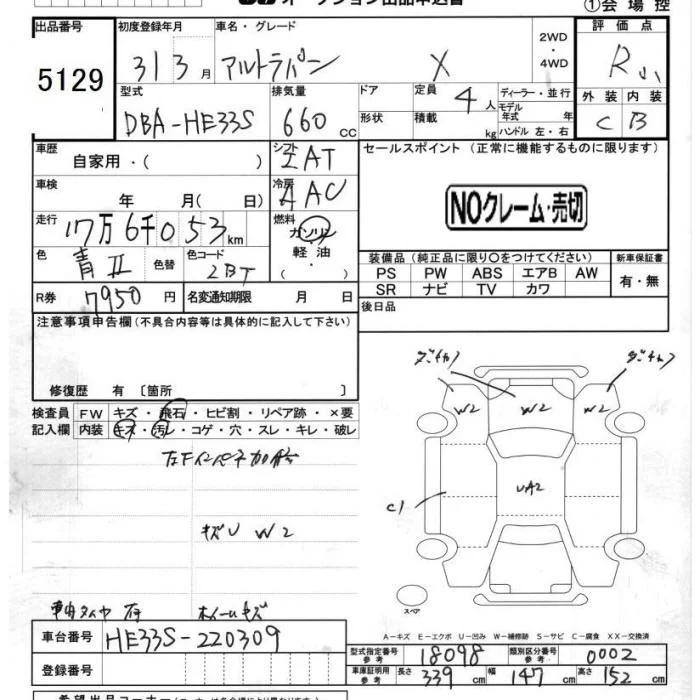 オークション出品申込書
①会場控
出品番号 初度登録年月 車名・グレード 2WD・4WD 評価点
5129 31 3月 アルトラパン X R
型式 排気量 ドア 定員 4人 ディーラー・並行 外装 内装
DBA-HE33S 660cc 形状 積載 kg モデル年式 年 ハンドル 左・右 C B
車歴 自家用・( ) シフト IAT セールスポイント (正常に機能するものに限ります)
車検 年 月( 日) 冷房 AAC
NOクレーム・売切
走行 17万6千053km 燃料 ガソリン
軽油・( )
色 青II 色替 色コード 2BT
装備品 (純正品に限り○をつけてください) 新車保証書
PS PW ABS エアB AW 有・無
SR ナビ TV カワ
R券 7950円 名変通知期限 月 日 後日品
注意事項申告欄(不具合内容等は具体的に記入して下さい)
修復歴 有 〔箇所 〕
検査員記入欄 FW キズ・飛石・ヒビ割・リペア跡・×要
内装 キズ・汚レ・コゲ・穴・スレ・キレ・破レ
キズU W2
ホイールキズ
W2 W2 W2
C1 UA2
スペア
A-キズ E-エクボ U-凹み W-補修跡 S-サビ C-腐食 XX-交換済
車台番号 HE33S-220309
型式指定番号 参考 18098 類別区分番号 参考 0002
登録番号
車庫証明用 参考 長さ 339cm 幅 147cm 高さ 152cm